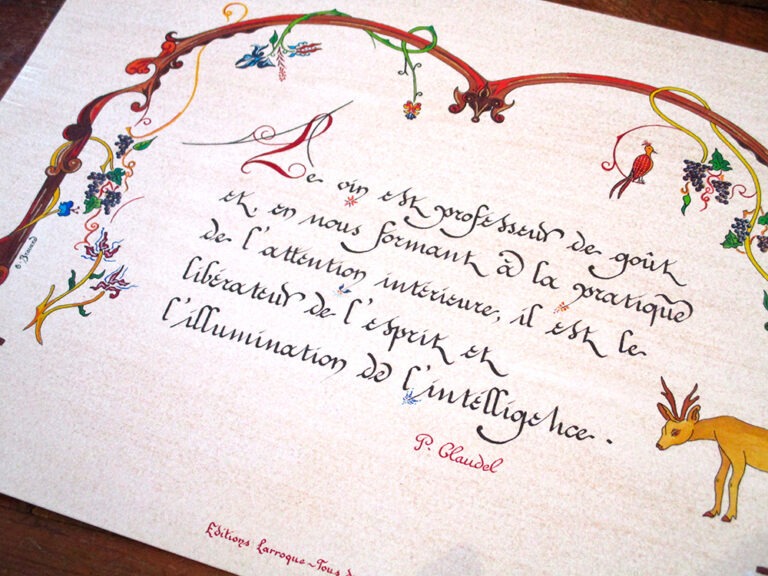 Le vin est professeur de goût
et, en nous formant à la pratique
de l'attention intérieure, il est le
libérateur de l'esprit et
l'illumination de l'intelligence.
P. Claudel
Editions Larroque - Tous